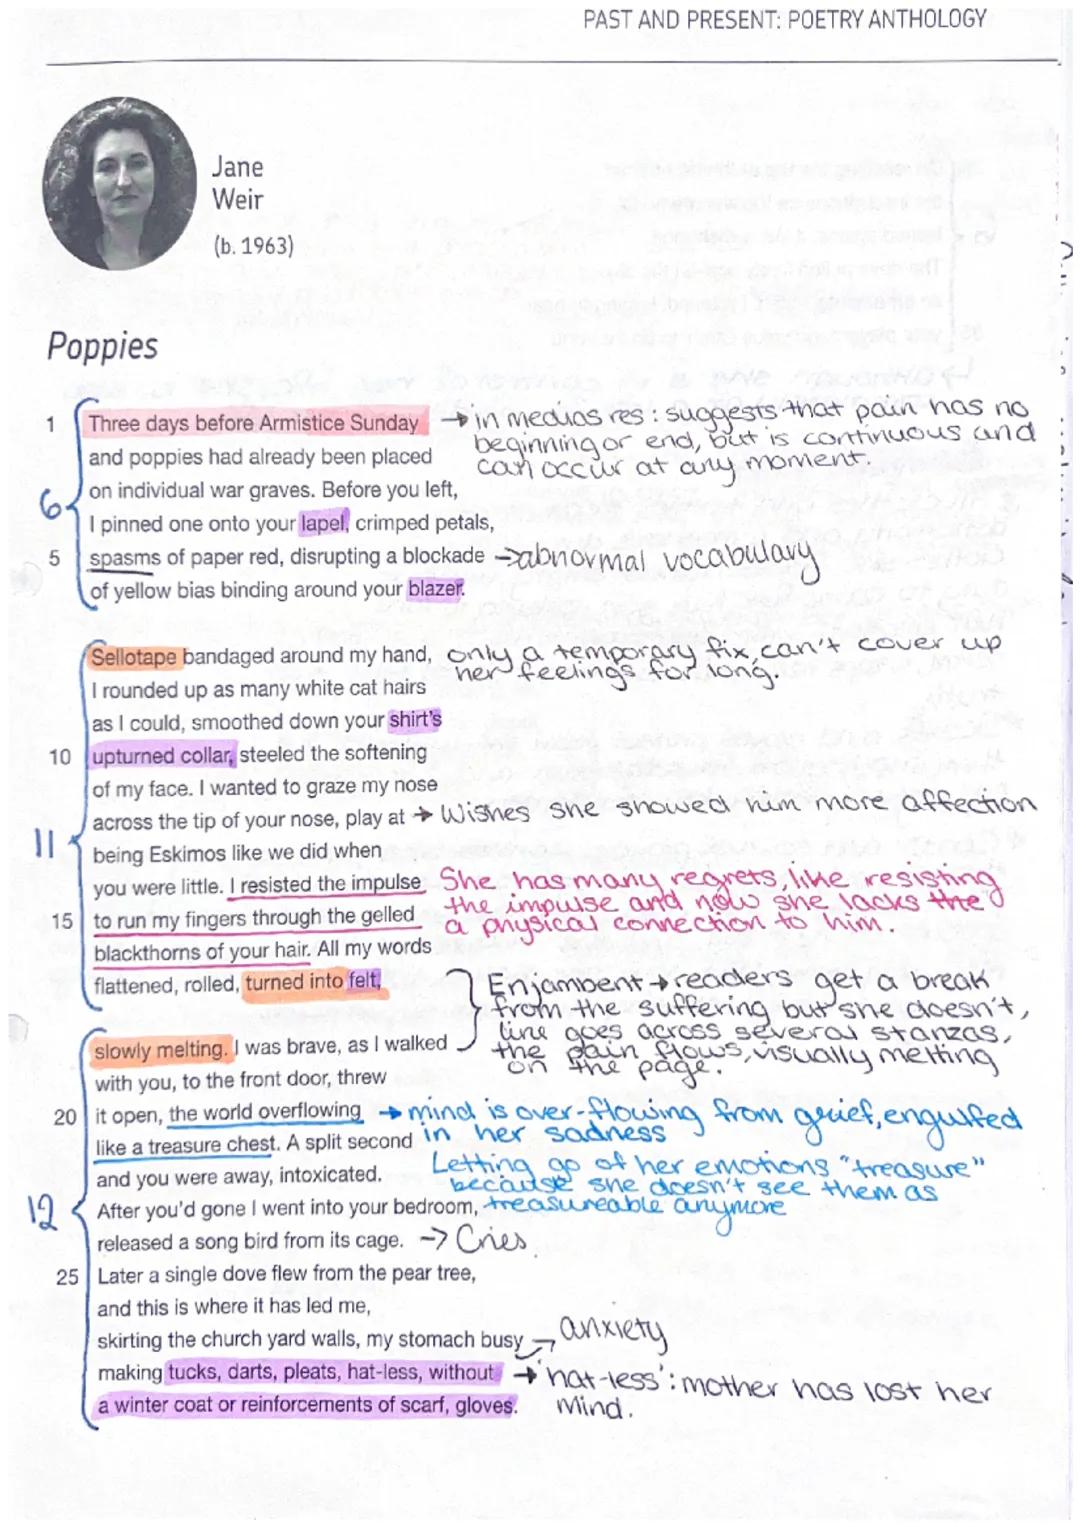 PAST AND PRESENT: POETRY ANTHOLOGY
Jane
Weir
(b. 1963)
Poppies
1 Three days before Armistice Sunday → in medias res: suggests that pain has no
beginning or end, but is continuous and
and poppies had already been placed
can occur at any moment.
6 on individual war graves. Before you left,
I pinned one onto your lapel, crimped petals,
5 spasms of paper red, disrupting a blockade → abnormal vocabulary
of yellow bias binding around your blazer.
Sellotape bandaged around my hand, only a temporary fix, can't cover up
her feelings for long.
I rounded up as many white cat hairs
as I could, smoothed down your shirt's
10 upturned collar, steeled the softening
of my face. I wanted to graze my nose
across the tip of your nose, play at → Wishes she showed him more affection
11 being Eskimos like we did when
you were little. I resisted the impulse She has many regrets, like resisting
the impulse and now she lacks the
15 to run my fingers through the gelled a physical connection to him.
blackthorns of your hair. All my words
flattened, rolled, turned into felt,
Enjambent → readers get a break
from the suffering but she doesn't,
line goes across several stanzas,
the pain flows, visually melting
on the page.
slowly melting. I was brave, as I walked
with you, to the front door, threw
20 it open, the world overflowing → mind is over-flowing from grief, engulfed
in her sadness
like a treasure chest. A split second
Letting go of her emotions "treasure"
because she doesn't see them as
treasureable anymore
and you were away, intoxicated.
12 After you'd gone I went into your bedroom,
released a song bird from its cage. → Cries.
25 Later a single dove flew from the pear tree,
and this is where it has led me,
skirting the church yard walls, my stomach busy → anxiety
making tucks, darts, pleats, hat-less, without → 'hat-less': mother has lost her
mind.
a winter coat or reinforcements of scarf, gloves.